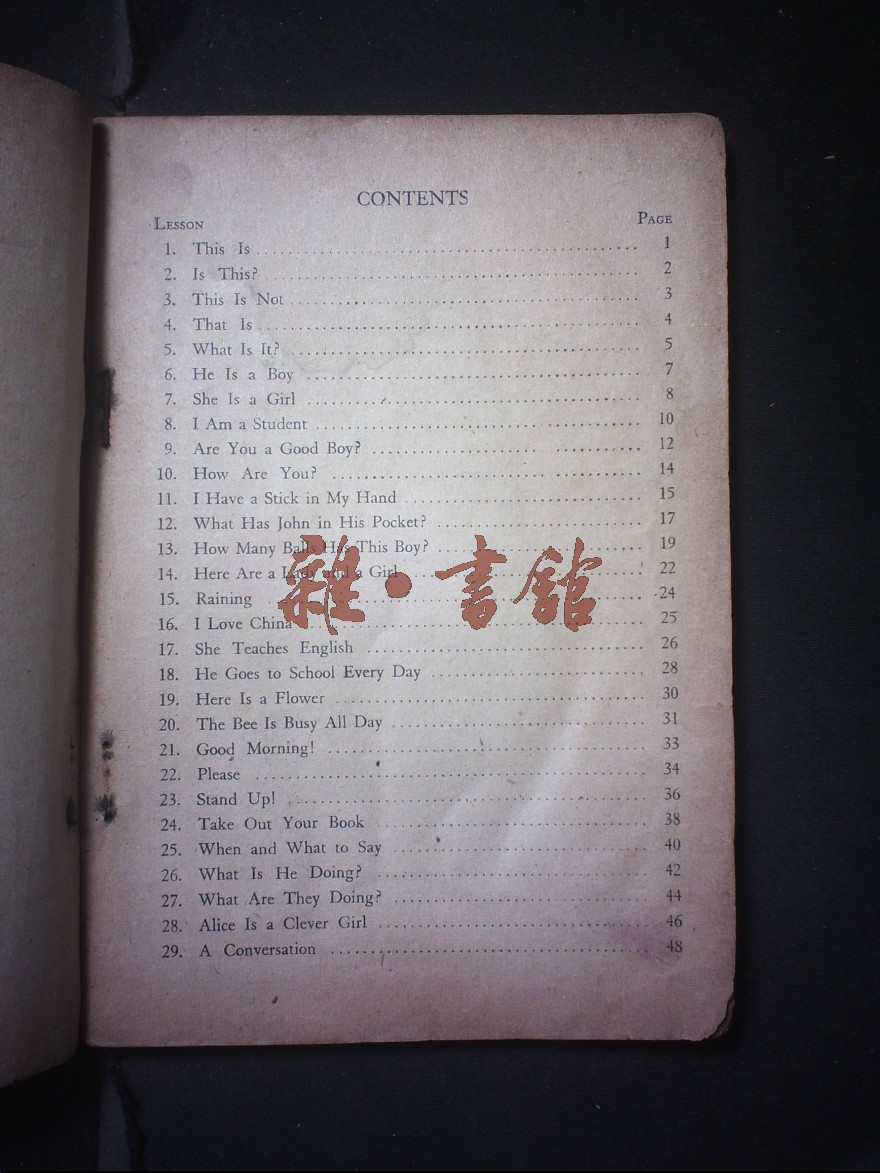 CONTENTS
LESSON PAGE
1. This Is 1
2. Is This? 2
3. This Is Not 3
4. That Is 4
5. What Is It? 5
6. He Is a Boy 7
7. She Is a Girl 8
8. I Am a Student 10
9. Are You a Good Boy? 12
10. How Are You? 14
11. I Have a Stick in My Hand 15
12. What Has John in His Pocket? 17
13. How Many Balls Has This Boy? 19
14. Here Are a Lady and a Girl 22
15. Raining 24
16. I Love China 25
17. She Teaches English 26
18. He Goes to School Every Day 28
19. Here Is a Flower 30
20. The Bee Is Busy All Day 31
21. Good Morning! 33
22. Please 34
23. Stand Up! 36
24. Take Out Your Book 38
25. When and What to Say 40
26. What Is He Doing? 42
27. What Are They Doing? 44
28. Alice Is a Clever Girl 46
29. A Conversation 48
雜·書館